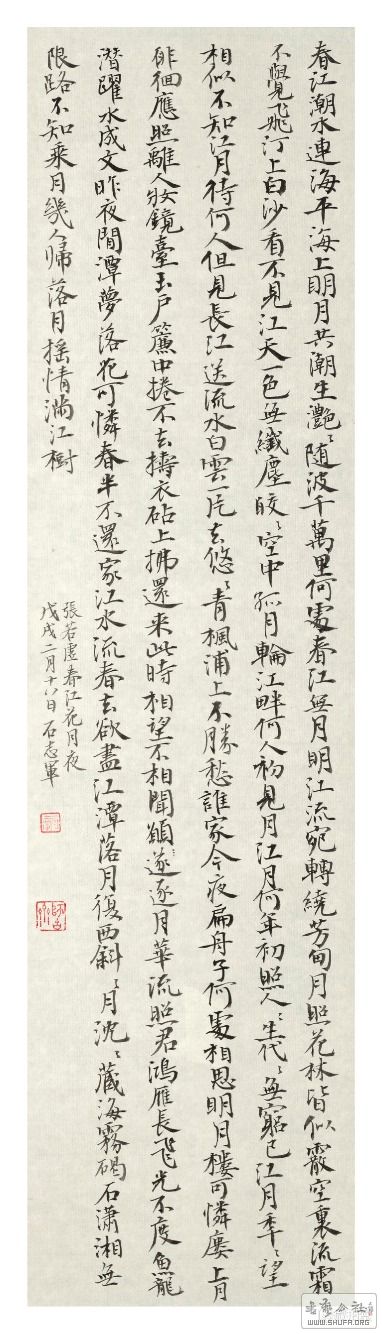 春江潮水連海平海上明月共潮生灔〻隨波千萬里何處春江無月明江流宛轉繞芳甸月照花林皆似霰空裏流霜
不覺飛汀上白沙看不見江天一色無纖塵皎〻空中孤月輪江畔何人初見月江月何年初照人〻生代〻無窮已江月年〻望
相似不知江月待何人但見長江送流水白雲一片去悠〻青楓浦上不勝愁誰家今夜扁舟子何處相思明月樓可憐廔上月
徘徊應照離人妝鏡臺玉戶簾中捲不去擣衣砧上拂還来此時相望不相聞願遂逐月華流照君鴻雁長飛光不度魚龍
潛躍水成文昨夜閒潭夢落花可憐春半不還家江水流春去欲盡江潭落月復西斜〻月沈〻藏海霧碣石瀟湘無
限路不知乘月幾人歸落月搖情滿江樹
張若虛春江花月夜
戊戌二月十八日石志軍
WWW.SHUFA.ORG